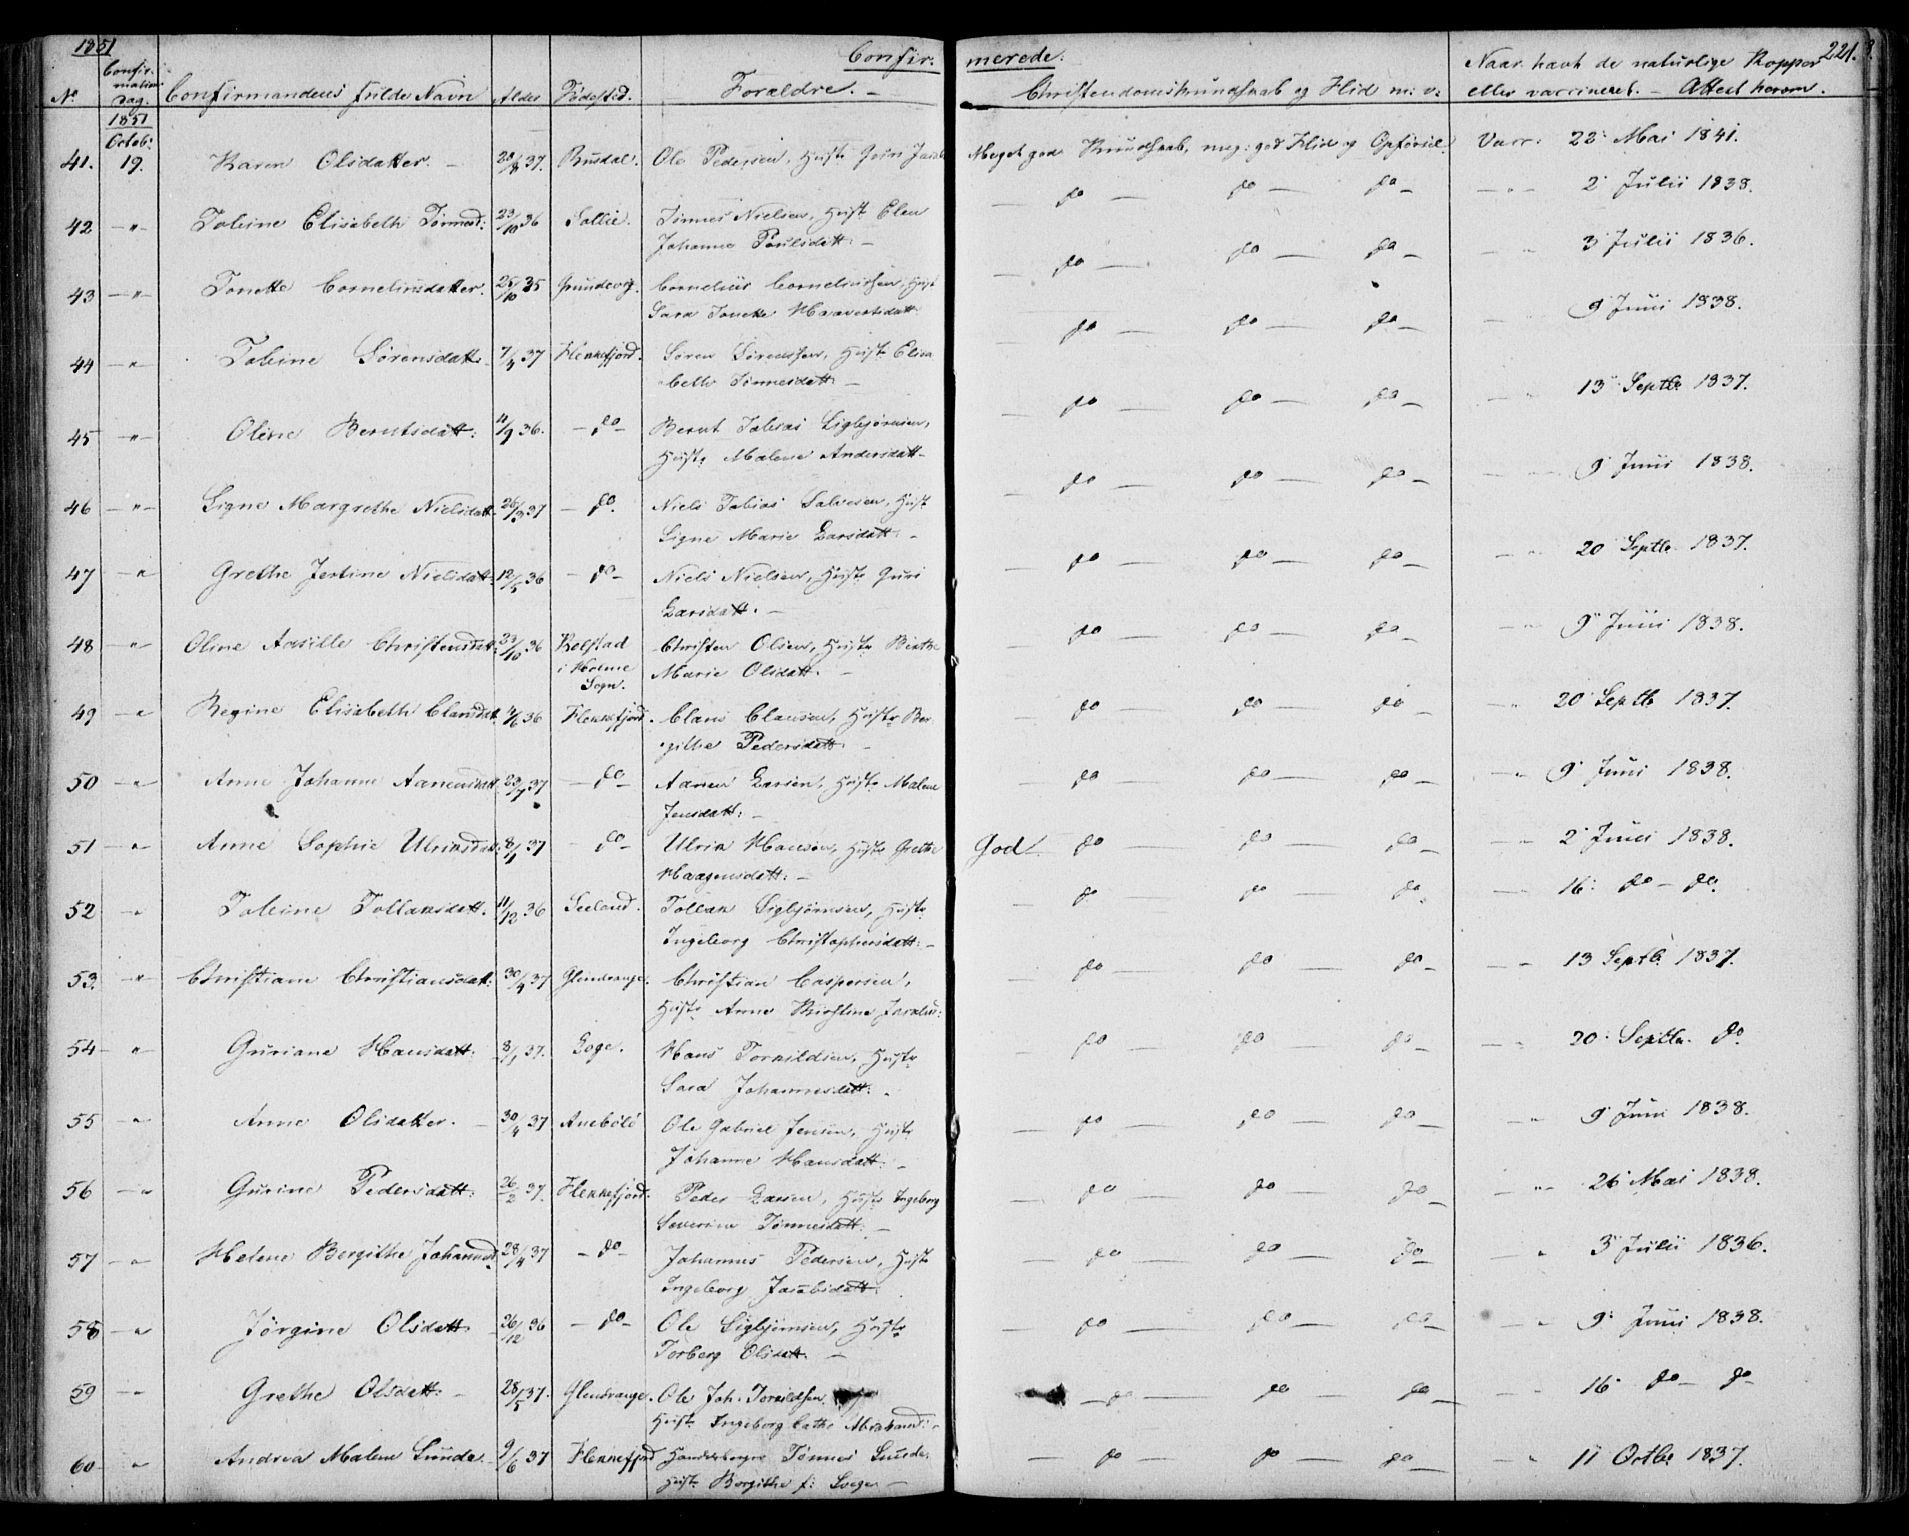 1851
Confir: merede: 221.
No Confirmations Dag. Confirmandens fulde Navn Alder Fødested. Forældre. Christendomskundskab og Flid m: v: Naar havt de naturlige Kopper
eller vaccineret. - Attest herom.
1851
Octob:
41. 19. Karen Olsdatter. 37. Ole Pedersen, Hustr Meget god Kundskab, meg: god Flid og Opførsel. Vacc: 22 Mai 1841.
42 -"- Tobine Elisabeth Tønnesd: 23/10 36 Tønnes Nielsen, Hustr Elen do do do 2' Julii 1838.
Johanne Poulsdatt: -
43 -"- Tonette Corneliusdatter. 25/10 35 Cornelius Corneliussen, Hust do do do 3 Julii 1836.
Sara Tonette
44 -"- Tobine Sørensdatt. 37 Flekkefjord. Søren Sørensen, Hustr Elisa do do do 9' Junii 1838.
beth Tønnesdatt: -
45 -"- Oline Berntsdatt: 36. - do - Bernt Tobias Sigbjørnsen, do do do 13' Septbr 1837.
Hustr. Malene Andersdatt -
46 -"- Signe Margrethe Nielsdatt. 26/3 37 - do. Niels Tobias Salvesen, Hust do do do 9' Junii 1838.
Signe Marie Larsdatt: -
47 -"- Grethe Jertine Nielsdatt: 12/5 36 - do - Niels Nielsen, Hustr Guri do do do 20 Septbr. 1837.
Larsdatt. -
48 -"- Oline Aasille Christensdatt: 23/10 36 Kolstad Christen Olsen, Hustr Birthe do do do 9' Junii 1838.
i Holme Marie Olsdatt.
Sogn.
49 -"- Regine Elisabeth Clausdatt. 36 Flekkefjord. Claus Clausen, Hustr Ber- do do do 20 Septb 1837.
githe Pedersdatt:
50 -"- Anne Johanne Aanensdatt. 37 - do - Aanen Larsen, Hustr Malene do do do 9' Junii 1838.
Jensdatt: -
51 -"- Anne Sophie Ulriksdatt: 8/1 37 - do - Ulrik Hansen, Hustr Grethe God do do do 2' Junii 1838.
Haagensdatt: -
52 -"- Tobine Tollaksdatt. 11/12 36 Seeland. Tollak Sigbjørnsen, Hustr do do do 16' do - do.
Ingeborg Christophersdatt: -
53. -"- Christiane Christiansdatt. 30/4 37 Glendrange. Christian Caspersen, do do do 13 Septb. 1837.
Hustr. Anne Kirstine
54 -"- Guriane Hansdatt. 8/1 37. Loge. Hans Torkildsen, Hustr do do do 20' Septbr. do.
Sara Johannesdatt:
55 -"- Anne Olsdatter. 30/4 37 Ole Gabriel Jensen, Hustr do do do 9' Juni 1838.
Johanne Hansdatt:
56 -"- Gurine Pedersdatt: 26/2 37. Flekkefjord. Peder Larsen, Hustr Ingeborg do do do 26' Mai 1838.
Severine Tønnesdatt: -
57 -"- Helene Bergithe Johannesd. 28/4 37 - do - Johannes Pedersen, Hustr do do do 3' Julii 1836.
Ingeborg Jacobsdatt:
58 -"- Jørgine Olsdatt 26/12 36 - do - Ole Sigbjørnsen, Hustr do do do 9' Junii 1838.
Torborg Olsdatt. -
59 -"- Grethe Olsdatt: - 28/5 37. Glendrange. Ole Joh: Torkildsen do do do 16' do - do
Hustr. Ingeborg Cathr
60 -"- Andrea Malene Sunde - 9/6 37 Flekkefjord Tønnes Sunde, do do do 11 Octbr 1837.
Hustr Bergithe f: